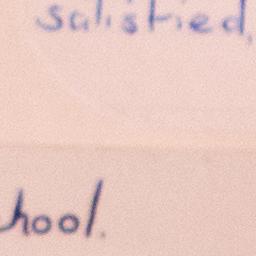 satisfied,
hool.